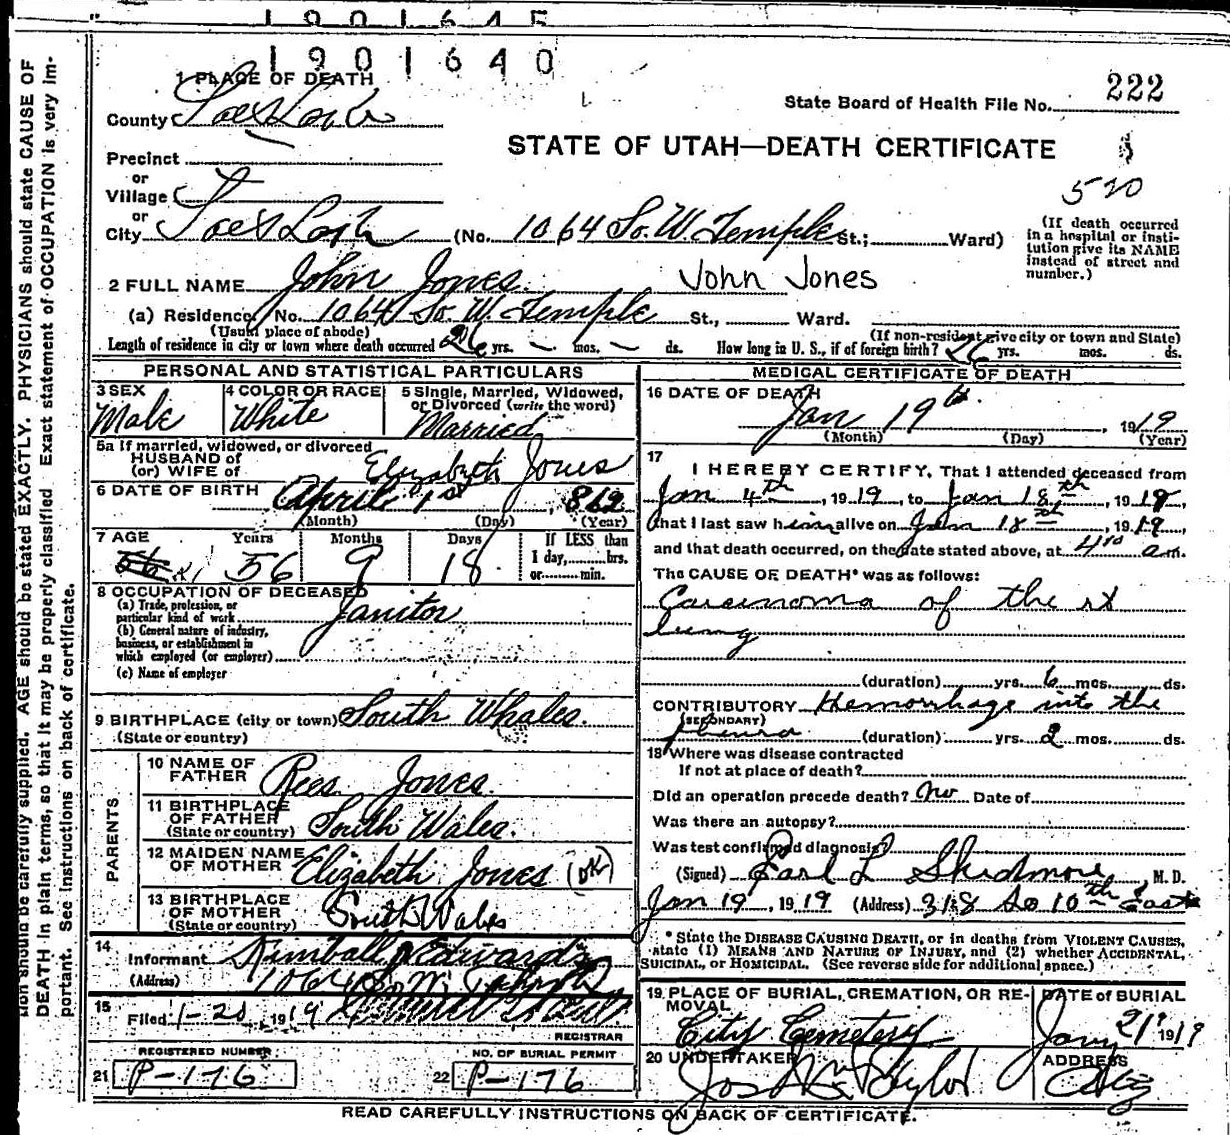 1901645
1901640
1 PLACE OF DEATH
County Salt Lake
State Board of Health File No. 222
STATE OF UTAH—DEATH CERTIFICATE
Precinct
or
Village
or
City Salt Lake (No. 1064 So. W. Temple St.; Ward)
520
(If death occurred in a hospital or insti-
tution give its NAME
instead of street and
number.)
2 FULL NAME John Jones. John Jones
(a) Residence, No. 1064 So. W. Temple St., Ward.
(Usual place of abode) (If non-resident give city or town and State)
Length of residence in city or town where death occurred 26 yrs. — mos. — ds. How long in U. S., if of foreign birth? 26 yrs. mos. ds.
PERSONAL AND STATISTICAL PARTICULARS
3 SEX Male
4 COLOR OR RACE White
5 Single, Married, Widowed,
or Divorced (write the word)
Married
5a If married, widowed, or divorced
HUSBAND of
(or) WIFE of Elizabeth Jones
6 DATE OF BIRTH April 1st, 1862
(Month) (Day) (Year)
7 AGE Years Months Days If LESS than
56 9 18 1 day,........hrs.
or........min.
8 OCCUPATION OF DECEASED
(a) Trade, profession, or
particular kind of work Janitor
(b) General nature of industry,
business, or establishment in
which employed (or employer)
(c) Name of employer
9 BIRTHPLACE (city or town) South Whales.
(State or country)
PARENTS
10 NAME OF
FATHER Rees Jones.
11 BIRTHPLACE
OF FATHER
(State or country) South Wales.
12 MAIDEN NAME
OF MOTHER Elizabeth Jones (OK)
13 BIRTHPLACE
OF MOTHER
(State or country) South Wales
14
Informant Kimball Edwards
(Address) 1064 So W. Temple
15
Filed 1-20, 1919
REGISTRAR
REGISTERED NUMBER
21 P-176
NO. OF BURIAL PERMIT
22 P-176
MEDICAL CERTIFICATE OF DEATH
16 DATE OF DEATH
Jan 19th, 1919
(Month) (Day) (Year)
17
I HEREBY CERTIFY, That I attended deceased from
Jan 4th, 1919, to Jan 18th, 1919,
that I last saw him alive on Jan 18th, 1919
and that death occurred, on the date stated above, at 4 am.
The CAUSE OF DEATH* was as follows:
Carcinoma of the rt
lung
(duration) yrs. 6 mos. ds.
CONTRIBUTORY Hemorrhage into the
(SECONDARY)
pleura (duration) yrs. 2 mos. ds.
18 Where was disease contracted
If not at place of death?
Did an operation precede death? No Date of
Was there an autopsy?
Was test confirmed diagnosis?
(Signed) Earl L Skidmore, M. D.
Jan 19, 1919 (Address) 318 So 10th East
* State the DISEASE CAUSING DEATH, or in deaths from VIOLENT CAUSES,
state (1) MEANS AND NATURE OF INJURY, and (2) whether ACCIDENTAL,
SUICIDAL, or HOMICIDAL. (See reverse side for additional space.)
19 PLACE OF BURIAL, CREMATION, OR RE-
MOVAL
City Cemetery
DATE of BURIAL
Jany 21, 1919
20 UNDERTAKER
Jos Wm Taylor
ADDRESS
City
READ CAREFULLY INSTRUCTIONS ON BACK OF CERTIFICATE.
tion should be carefully supplied. AGE should be stated EXACTLY. PHYSICIANS should state CAUSE OF
DEATH in plain terms, so that it may be properly classified. Exact statement of OCCUPATION is very im-
portant. See Instructions on back of certificate.